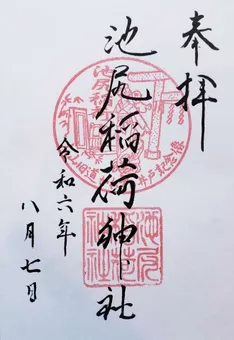 奉拝
池尻稲荷神社
令和六年
八月七日
池尻
稲荷
神社